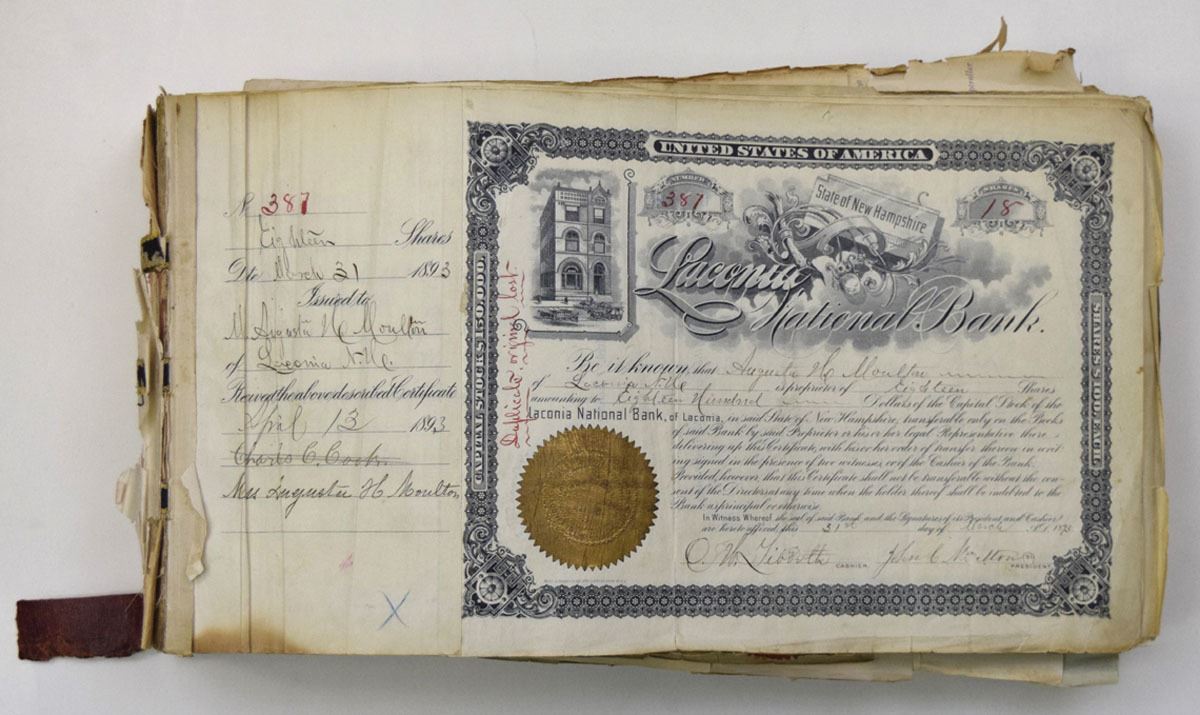 No 387
Eighteen Shares
Dte March 31 1893
Issued to
M Augusta H Moulton
of Laconia N.H.
Received the above described Certificate
April 13 1893
Charles C. Cook
Mrs Augusta H Moulton
X
UNITED STATES OF AMERICA
NUMBER
387
State of New Hampshire
SHARES
18
Laconia
National Bank.
CAPITAL STOCK $150,000.
SHARES $100. EACH
Duplicate, original lost
Be it known, that Augusta H Moulton
of Laconia N.H. is proprietor of Eighteen Shares
amounting to Eighteen Hundred Dollars of the Capital Stock of the
Laconia National Bank, of Laconia, in said State of New Hampshire, transferable only on the Books
of said Bank by said Proprietor or his or her legal Representative there-
delivering up this Certificate, with his or her order of transfer thereon in writ-
ing signed in the presence of two witnesses, or of the Cashier of the Bank.
Provided, however, that this Certificate shall not be transferable without the con-
sent of the Directors at any time when the holder thereof shall be indebted to the
Bank as principal or otherwise.
In Witness Whereof the seal of said Bank and the Signatures of its President and Cashier
are hereto affixed, this 31st day of March A.D. 1893
O. W. Tibbetts CASHIER. John C Moulton PRESIDENT